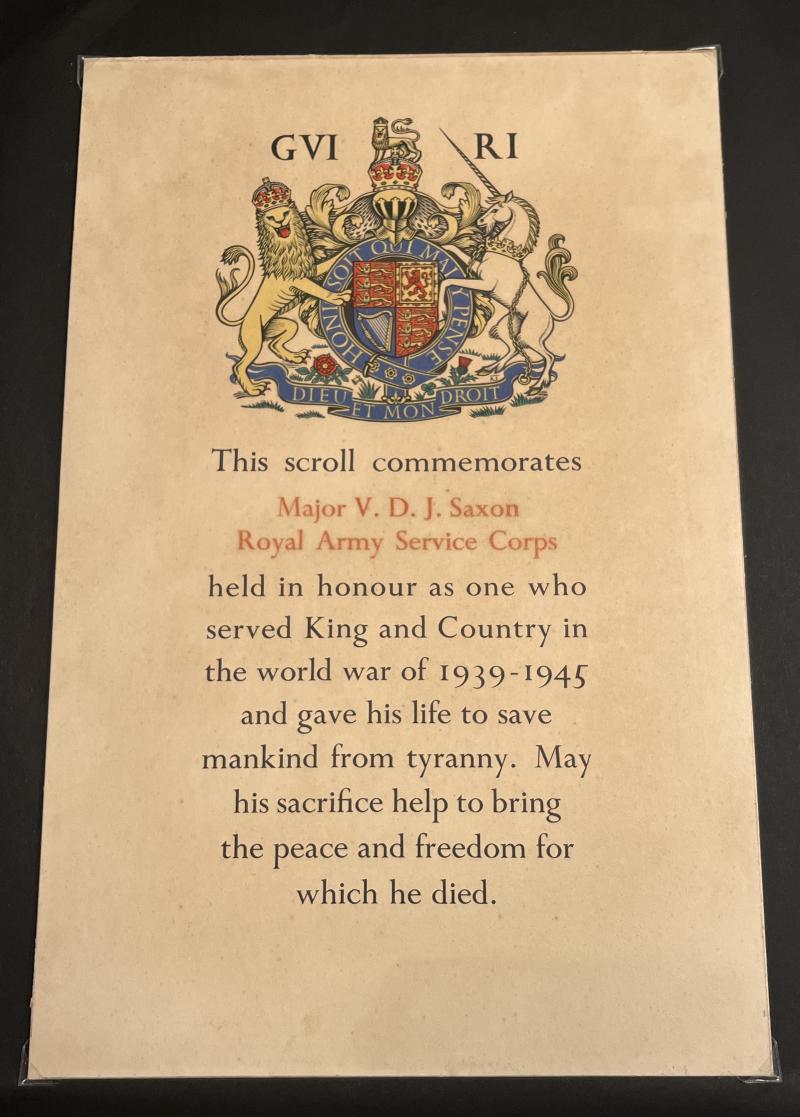 GVI RI
HONI SOIT QUI MAL Y PENSE
DIEU ET MON DROIT
This scroll commemorates
Major V. D. J. Saxon
Royal Army Service Corps
held in honour as one who
served King and Country in
the world war of 1939-1945
and gave his life to save
mankind from tyranny. May
his sacrifice help to bring
the peace and freedom for
which he died.